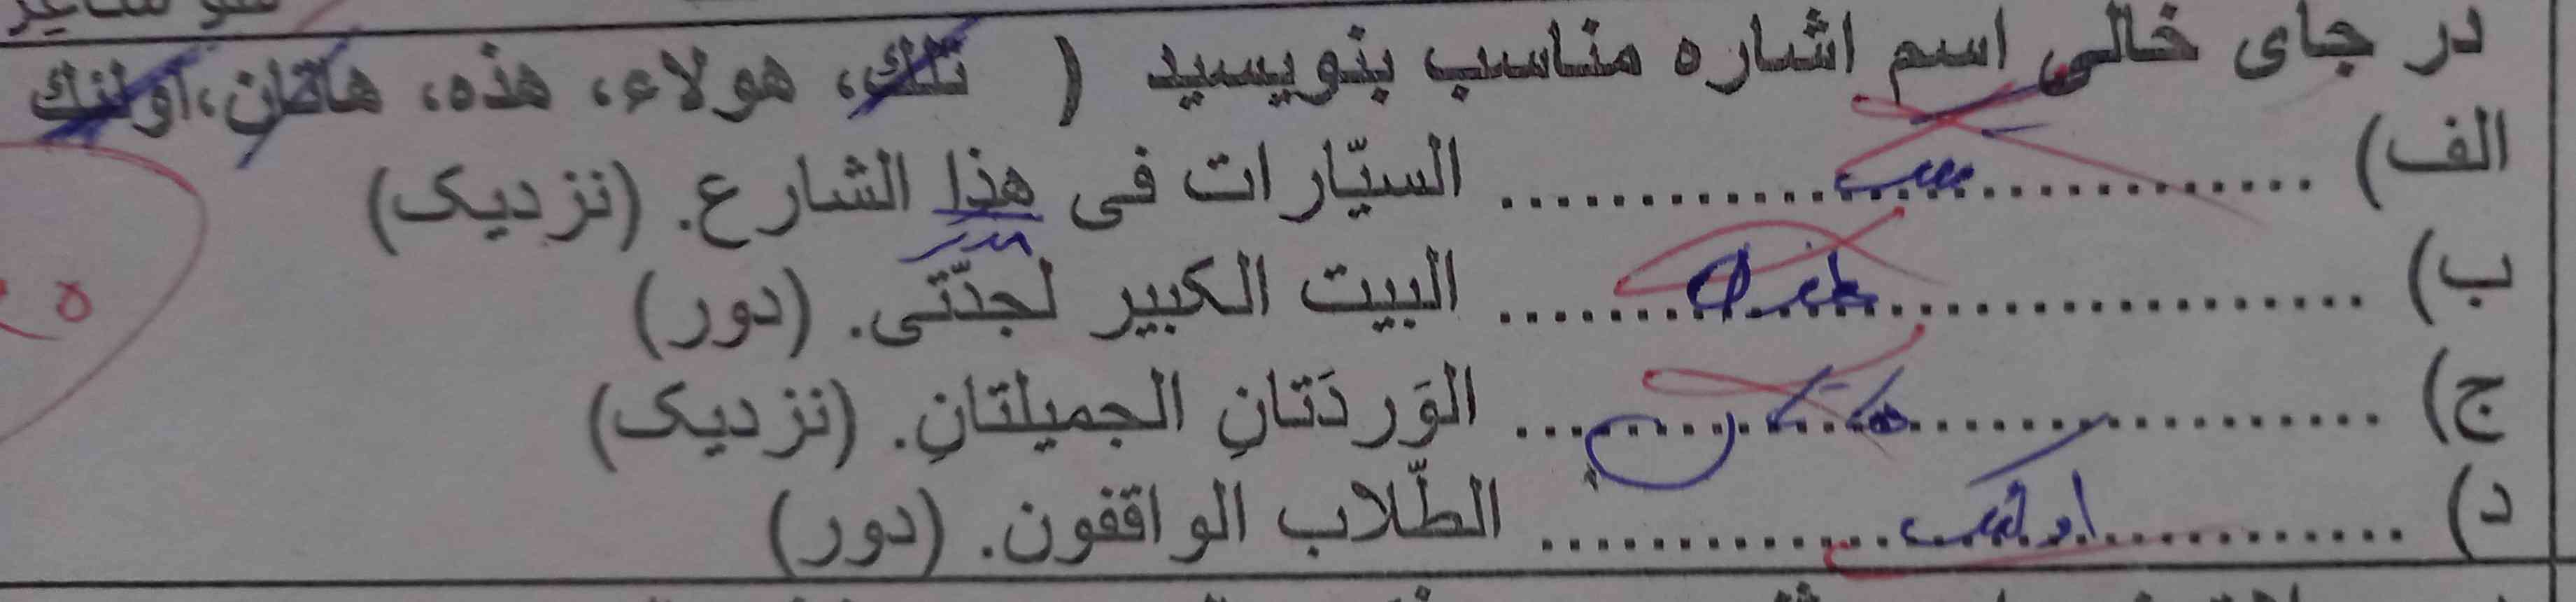 در جای خالی اسم اشاره مناسب بنویسید ( تلك، هولاء، هذه، هاتان، اولئك
الف) .............................. السیّارات فی هذا الشارع. (نزدیک)
ب) .............................. البیت الکبیر لجدّتی. (دور)
ج) .............................. الوَردَتانِ الجمیلتانِ. (نزدیک)
د) ............ اولئک ............ الطّلاب الواقفون. (دور)